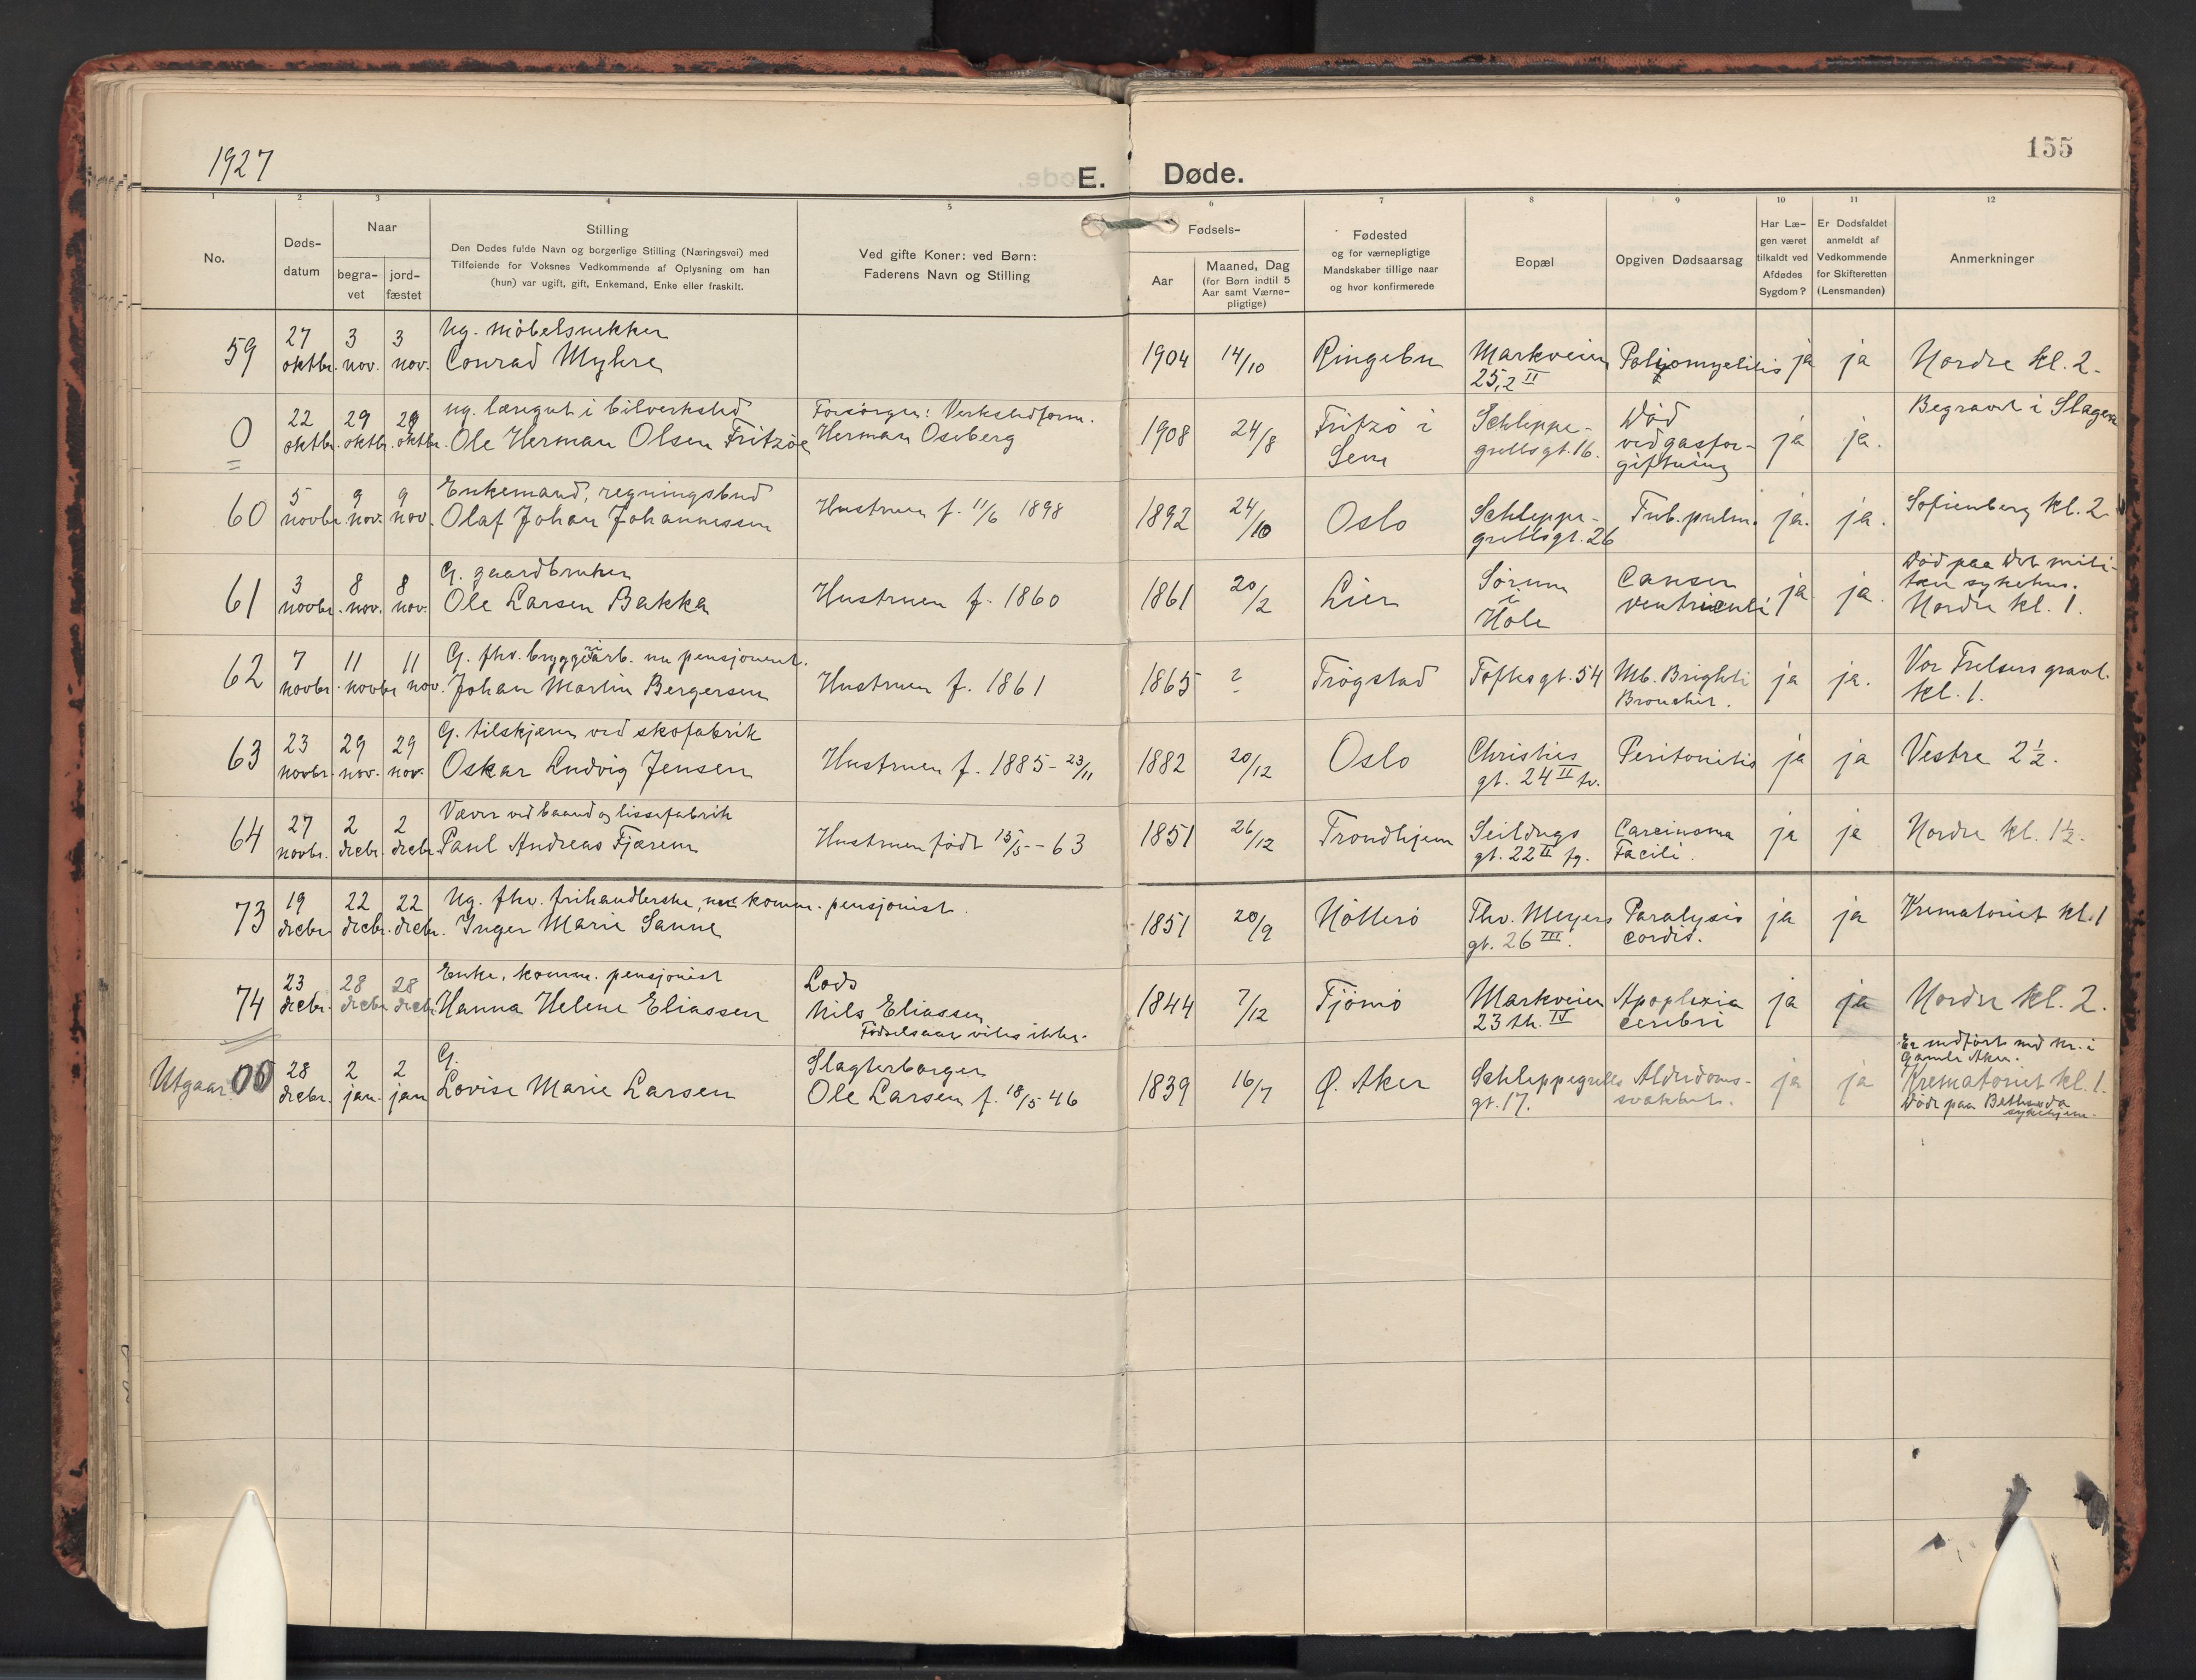 1927
155
E. Døde.
1 2 3 4 5 6 7 8 9 10 11 12
No.
Døds-
datum
Naar
begra-
vet
jord-
fæstet
Stilling
Den Dødes fulde Navn og borgerlige Stilling (Næringsvei) med
Tilføiende for Voksnes Vedkommende af Oplysning om han
(hun) var ugift, gift, Enkemand, Enke eller fraskilt.
Ved gifte Koner: ved Børn:
Faderens Navn og Stilling
Fødsels-
Aar
Maaned, Dag
(for Børn indtil 5
Aar samt Værne-
pligtige)
Fødested
og for værnepligtige
Mandskaber tillige naar
og hvor konfirmerede
Bopæl
Opgiven Dødsaarsag
Har Læ-
gen været
tilkaldt ved
Afdødes
Sygdom?
Er Dødsfaldet
anmeldt af
Vedkommende
for Skifteretten
(Lensmanden)
Anmerkninger
59
27
oktbr.
3
nov.
3
nov.
Ug. møbelsnekker
Conrad Myhre
1904
14/10
Ringebu
Markveien
25,2 II
Poliomyelitis
ja
ja
Nordre kl. 2.
0
22
oktbr.
29
oktbr.
29
oktbr.
ug. læregut i bilverksted
Ole Herman Olsen Fritzøe
Forsørger: Verkstedform.
Herman Oseberg
1908
24/8
Fritzø i
Sem
Schleppe-
grellsgt. 16.
Død
ved gasfor-
giftning
ja
ja.
Begravet i Slagen
60
5
novbr
9
nov.
9
nov.
Enkemand, regningsbud
Olaf Johan Johannessen
Hustruen f. 11/6 1898
1892
24/10
Oslo
Schleppe-
grellsgt. 26
Tub. pulm.
ja.
ja.
Sofienberg kl. 2
61
3
novbr.
8
nov.
8
nov.
G. gaardbruker
Ole Larsen Bakka
Hustruen f. 1860
1861
20/2
Lier
Sørum
i
Hole
Cancer
ventriculi
ja
ja.
Død paa Det mili-
tær sykehus.
Nordre kl. 1.
62
7
novbr.
11
novbr
11
nov.
G. fhv. bryggeriarb. nu pensjonert.
Johan Martin Bergersen
Hustruen f. 1861
1865
?
Trøgstad
Toftesgt. 54
Mb. Brighti
Bronchit.
ja
ja.
Vor Frelsers gravl.
kl. 1.
63
23
novbr.
29
nov.
29
nov.
G. tilskjærer ved skofabrik
Oskar Ludvig Jensen
Hustruen f. 1885 - 23/11
1882
20/12
Oslo
Christies
gt. 24 II tv.
Peritonitis
ja
ja
Vestre 2 1/2.
64
27
novbr.
2
decbr.
2
decbr
Væver ved baand og lissefabrik
Paul Andreas Fjærem
Hustruen født 15/5 - 63
1851
26/12
Trondhjem
Seildugs
gt. 22 II fg.
Carcinoma
Facili.
ja
ja
Nordre kl. 1 1/2.
73
19
decbr
22
decbr.
22
decbr.
Ug. fhv. frihandlerske, nu komm. pensjonist.
Inger Marie Sanne
1851
20/9
Nøtterø
Thv. Meyers
gt. 26 III.
Paralysis
cordis.
ja
ja
Krematoriet kl. 1
74
23
decbr.
28
decbr
28
decbr
Enke, komm. pensjonist
Hanna Helene Eliassen
Lods
Nils Eliassen
Fødselsaar vites ikke.
1844
7/12
Tjømø
Markveien
23 th. IV
Apoplexia
cerebri
ja
ja
Nordre kl. 2.
Utgaar. 00
28
decbr.
2
jan.
2
jan
G.
Lovise Marie Larsen
Slagterborger
Ole Larsen f. 18/5 46
1839
16/7
Ø. Aker
Schleppegrells
gt. 17.
Alderdoms-
svakhet.
ja
ja
Er indført med nr. i
Gamle Aker.
Krematoriet kl. 1.
Døde paa Bethesda
sykehjem.